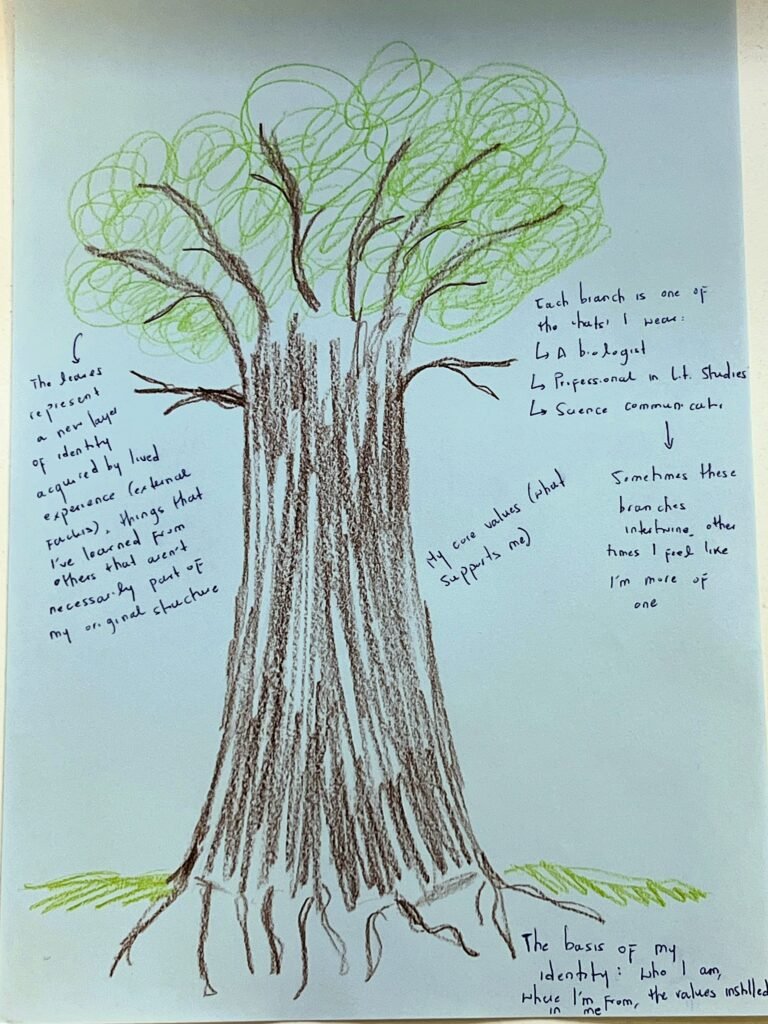 Each branch is one of
the 'hats' I wear:
↳ A biologist
↳ Professional in Lit. Studies
↳ Science communicati.
Sometimes these
branches
intertwine, other
times I feel like
I'm more of
one
The leaves
represent
a new layer
of identity
acquired by lived
experience (external
factors), things that
I've learned from
others that aren't
necessarily part of
my original structure
My core values (what
supports me)
The basis of my
identity: who I am,
where I'm from, the values instilled
in me